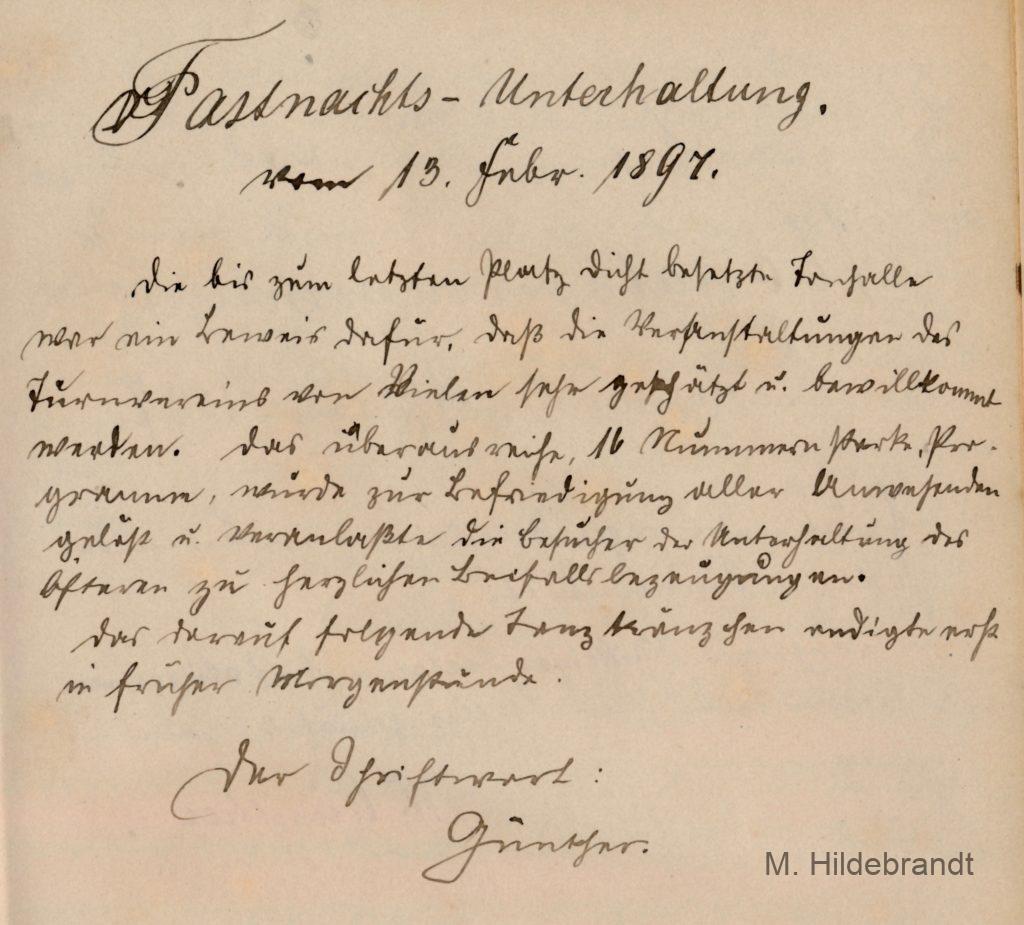 Fastnachts-Unterhaltung.
vom 13. Febr. 1897.
Die bis zum letzten Platz dicht besetzte Tonhalle
war ein Beweis dafür, daß die Veranstaltungen des
Turnvereins von Vielen sehr geschätzt u. bewillkommt
werden. Das überausreiche, 16 Nummern starke, Pro-
gramm, wurde zur Befriedigung aller Anwesenden
gelöst u. veranlaßte die Besucher der Unterhaltung des
Öfteren zu herzlichen Beifallsbezeugungen.
Das darauf folgende Tanzkränzchen endigte erst
in früher Morgenstunde.
Der Schriftwart:
Günther.
M. Hildebrandt